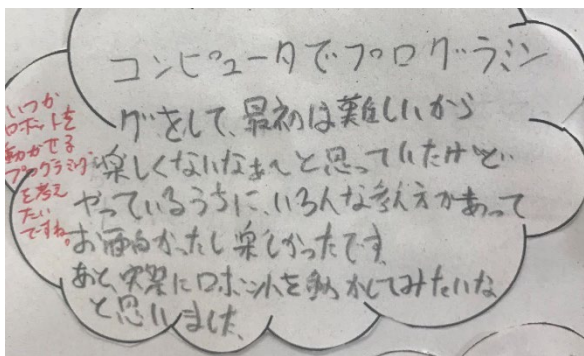 コンピュータでプログラミン
グをして、最初は難しいから
楽しくないなぁ〜と思っていたけど
やっているうちに、いろんな考え方があって
お面白かったし楽しかったです。
あと、実際にロボットを動かしてみたいな
と思いました。
いつか
ロボットを
動かせる
プログラミング
を考え
たい
ですね。